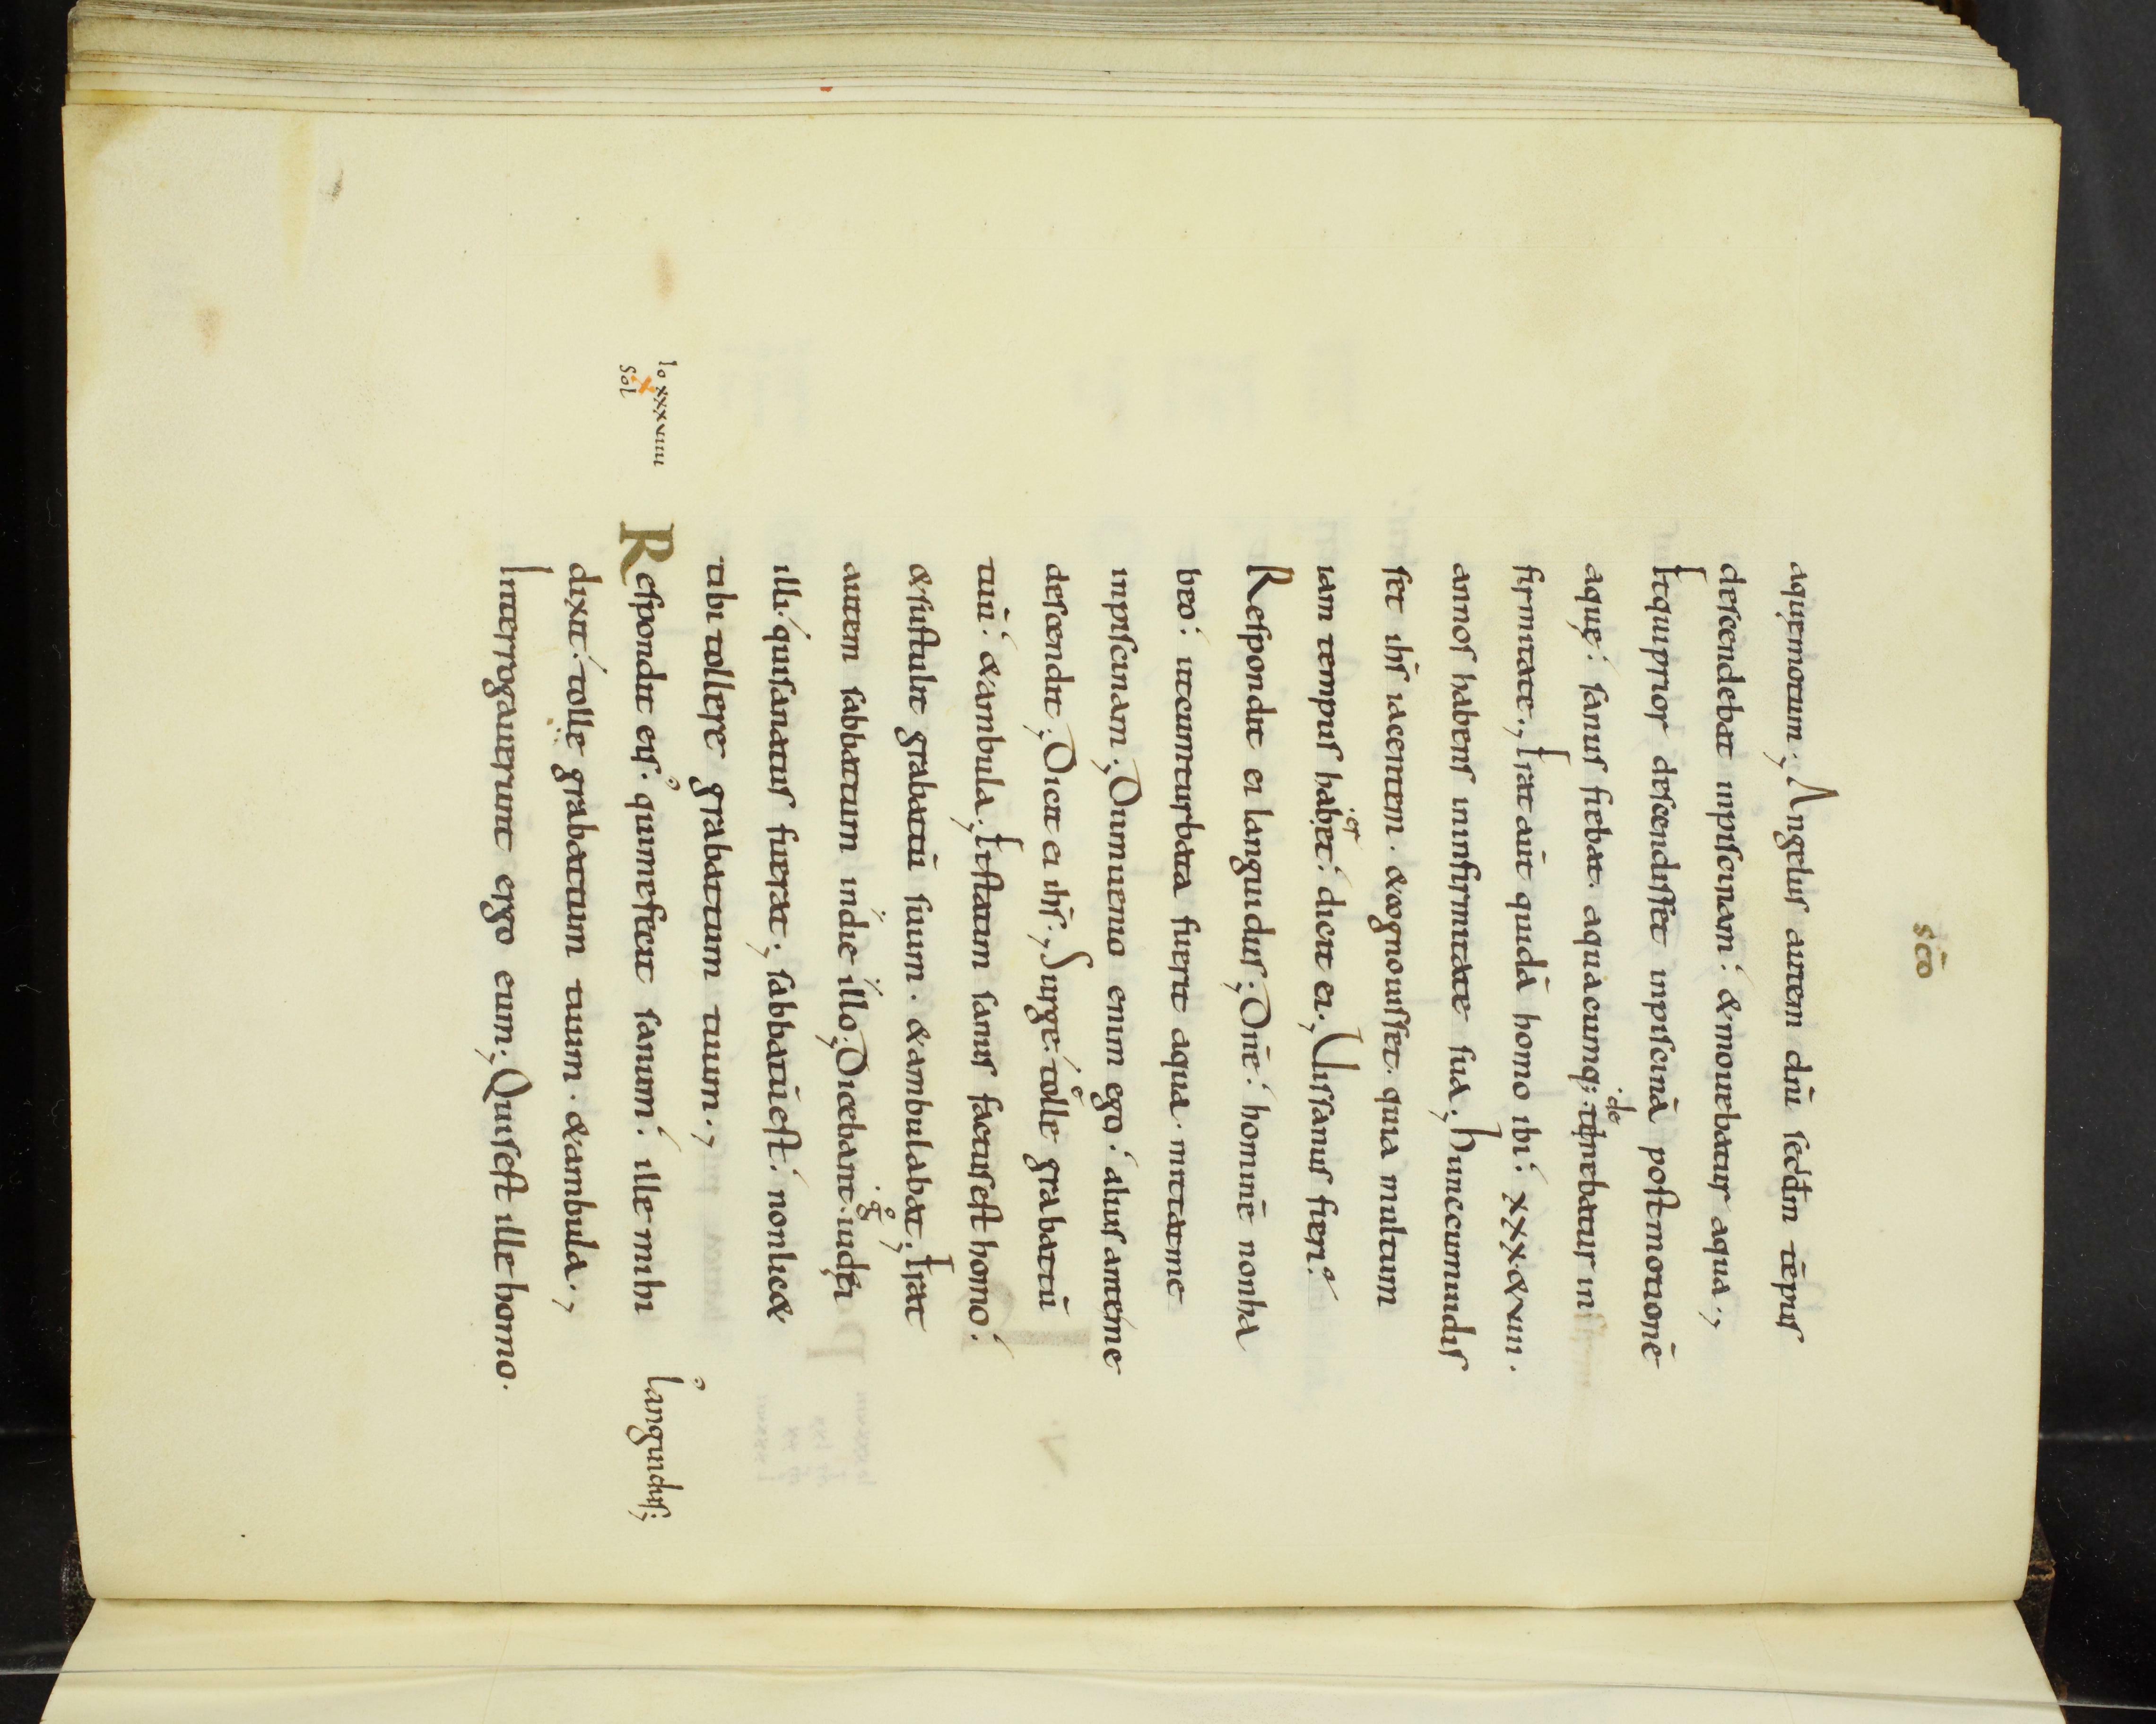 sc̄o
aquę motum; Angelus autem dn̄i secd̄m tēpus
descendebat inpiscinam: & mouebatur aqua.,
Et qui prior descendisset inpiscinā post motionē
aquę: sanus fiebat. a quacumq; tenebatur in
de
firmitate., Erat aut̄ quidā homo ibi: xxx.&viii.
annos habens ininfirmitate sua; Hunc cum uidis
set ih̄s iacentem. & cognouisset. quia multum
iam tempus haberet: dicit ei., Uis sanus fieri?
er
Respondit ei languidus; Dn̄e: hominē non ha
beo: ut cum turbata fuerit aqua. mittat me
inpiscinam; Dum uenio enim ego: alius ante me
descendit; Dicit ei ih̄s., Surge: tolle grabattū
tuū: & ambula; Et statim sanus factus est homo:
& sustulit grabattū suum. & ambulabat; Erat
autem sabbatum indie illo; Dicebant iudęi
g
illi: qui sanatus fuerat; sabbatū est: non lic&
tibi tollere grabattum tuum.,
Respondit eis. qui me fecit sanum: ille mihi languidus;
Io xxxviiii
sol
dixit: tolle grabattum tuum. & ambula.,
Interrogauerunt ergo eum; Quis est ille homo.